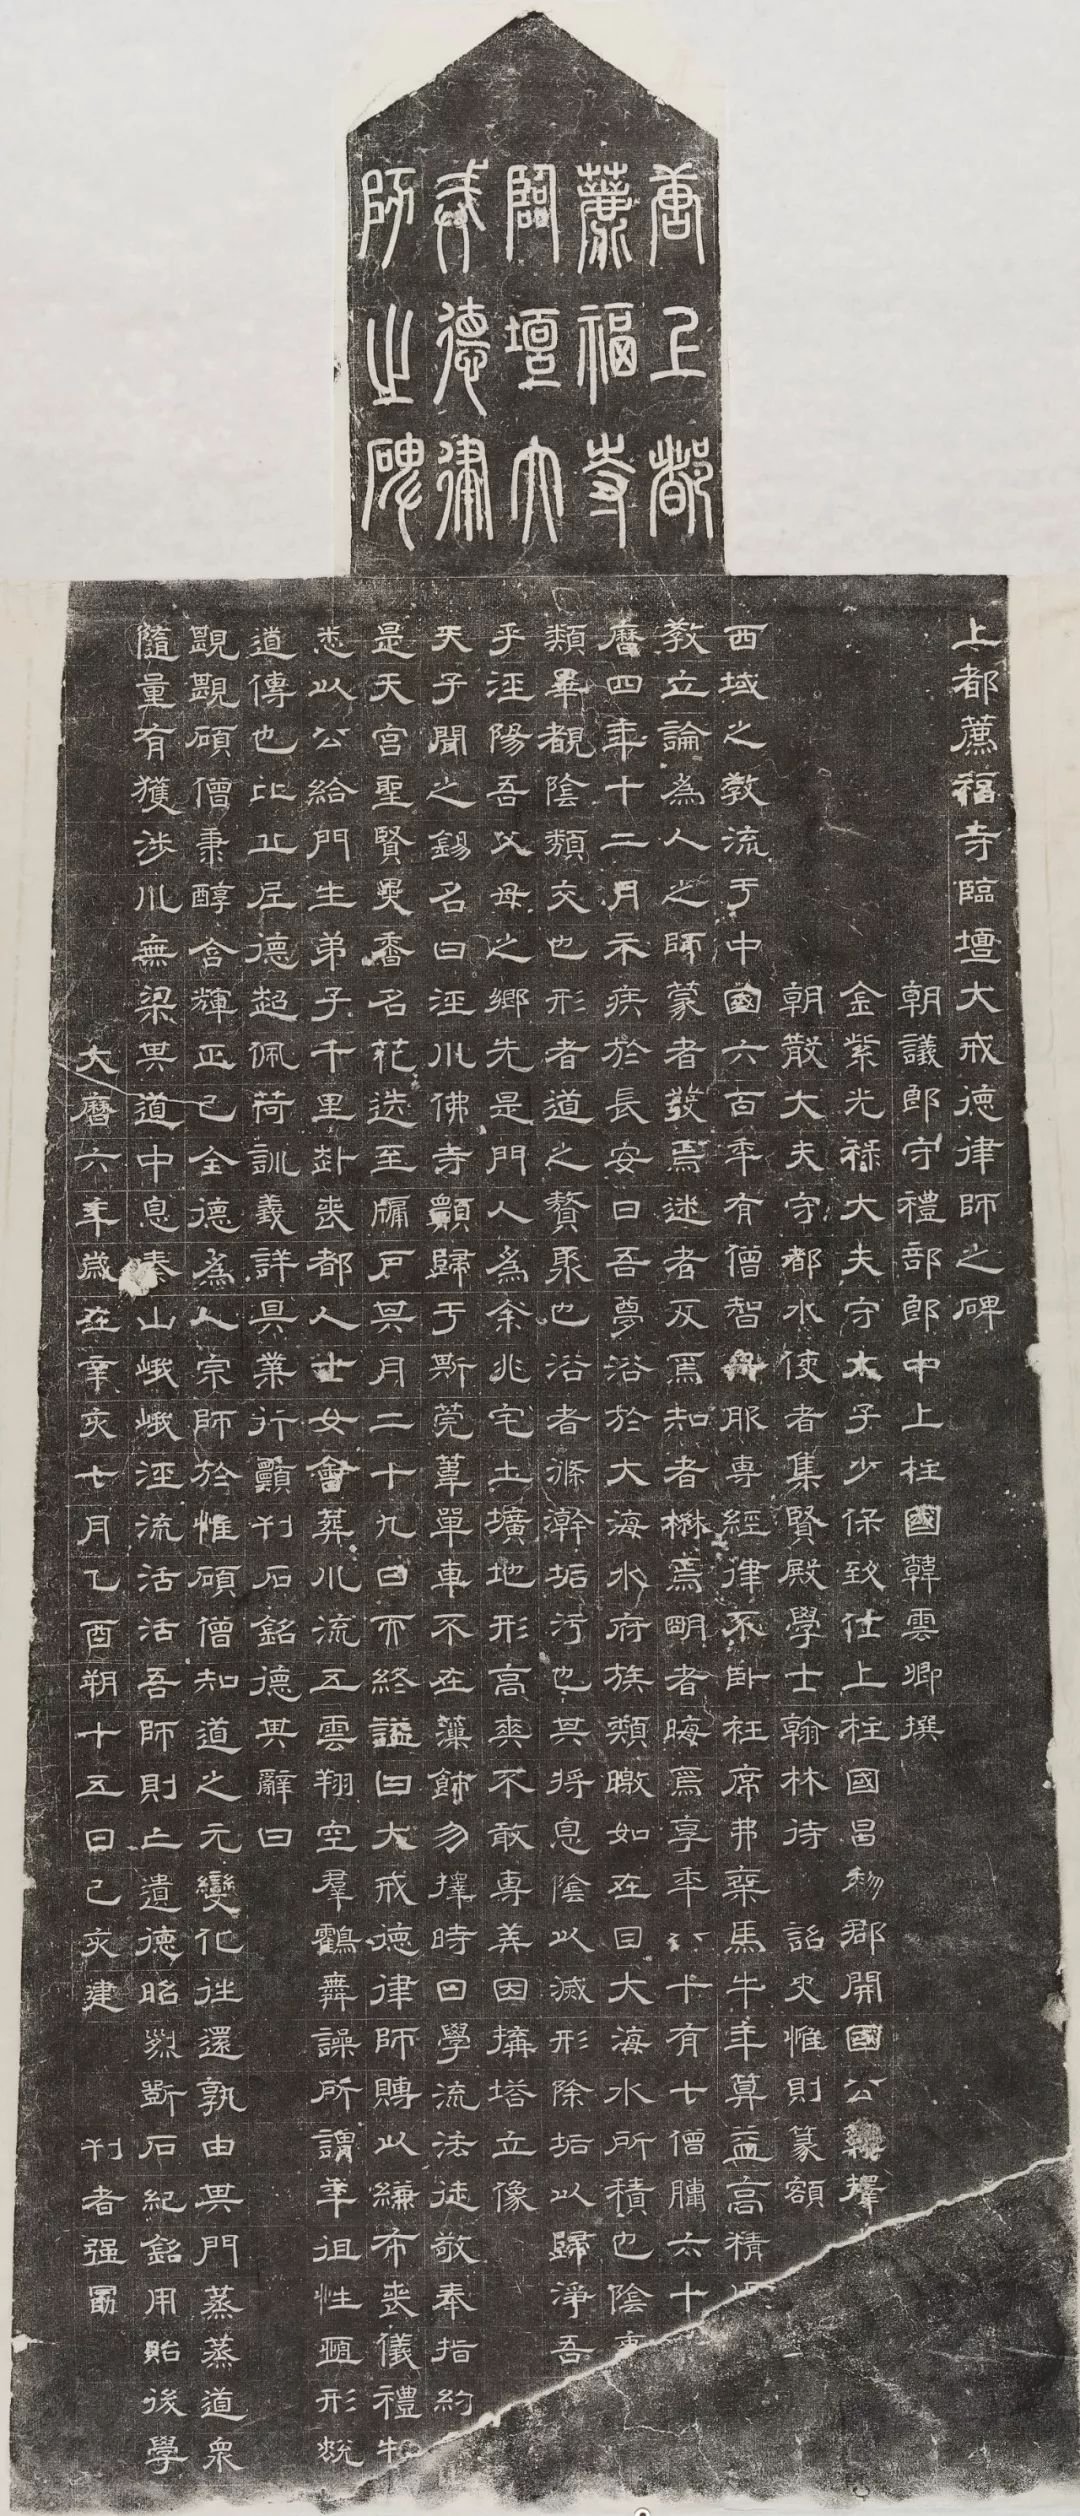 唐上都
薦福寺
臨壇大
戒德律
師之碑
上都薦福寺臨壇大戒德律師之碑
朝議郎守禮部郎中上柱國韓雲卿撰
金紫光祿大夫守太子少保致仕上柱國昌黎郡開國公韓擇
朝散大夫守都水使者集賢殿學士翰林待 詔史惟則篆額
西域之教流于中國六百年有僧智舟服專經律不臥衽席弗乘馬牛年算益高精
教立論為人之師蒙者發焉迷者反焉知者楙焉明者晦焉享年八十有七僧臘六十
曆四年十二月示疾於長安曰吾夢浴於大海水府族類曒如在目大海水所積也陰
類畢覩陰類交也形者道之贅聚也浴者滌澣垢污也其將息陰以滅形除垢以歸淨吾
乎涇陽吾父母之鄉先是門人為余兆宅土壙地形高爽不敢專美因搆塔立像
天子聞之錫名曰涇川佛寺願歸于斯莞葦單車不在藻飾勿擇時日學流法徒敬奉指約
是天宮聖賢異香名花迭至牖戶其月二十九日而終謚曰大戒德律師賻以縑布喪儀禮物
悉以公給門生弟子千里赴喪都人士女會葬川流五雲翔空羣鶴舞譟所謂年徂性區形蛻
道傳也比丘尼德超佩荷訓義詳具業行願刊石銘德其辭曰
覬覬碩僧秉醇含輝正己全德為人宗師於惟碩僧知道之元變化往還孰由其門蒸蒸道衆
隨量有獲涉川無梁畀道中息秦山峨峨涇流活活吾師則亡遺德昭烈斲石紀銘用貽後學
大曆六年歲在辛亥七月乙酉朔十五日己亥建 刊者强勗